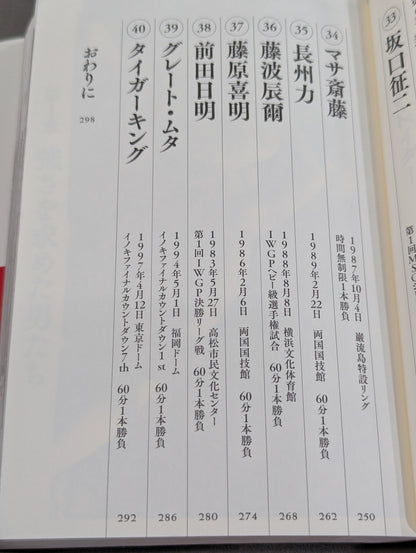 33 坂口征二
第1回MSG
34 マサ斎藤
1987年10月4日 巌流島特設リング
時間無制限1本勝負
250
35 長州力
1989年2月22日 両国国技館 60分1本勝負
262
36 藤波辰爾
1988年8月8日 横浜文化体育館
IWGPヘビー級選手権試合 60分1本勝負
268
37 藤原喜明
1986年2月6日 両国国技館 60分1本勝負
274
38 前田日明
1983年5月27日 高松市民文化センター
第1回IWGP決勝リーグ戦 60分1本勝負
280
39 グレート・ムタ
1994年5月1日 福岡ドーム
イノキファイナルカウントダウン1st 60分1本勝負
286
40 タイガーキング
1997年4月12日 東京ドーム
イノキファイナルカウントダウン7th 60分1本勝負
292
おわりに 298